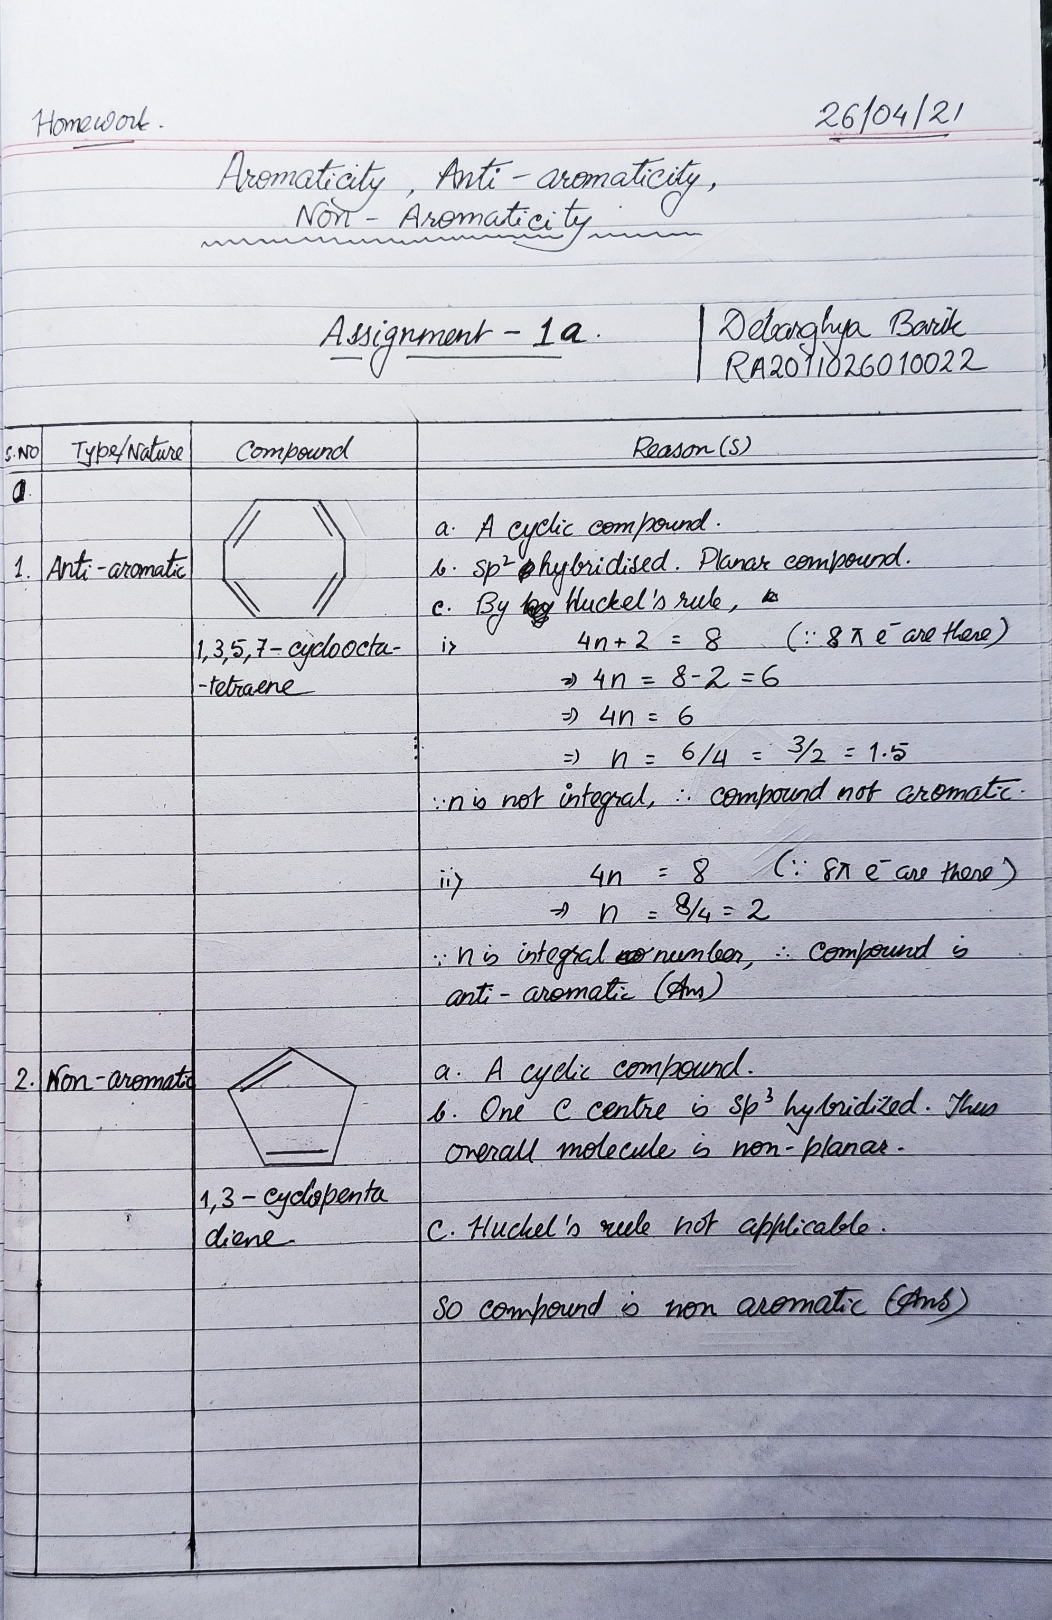 Homework.
26/04/21
Aromaticity, Anti-aromaticity,
Non-Aromaticity
Assignment - 1a.
Debarghya Barik
RA2011026010022
S.NO Type/Nature Compound Reason(s)
a.
a. A cyclic compound.
1. Anti-aromatic
b. sp² hybridised. Planar compound.
c. By Huckel's rule,
1,3,5,7-cycloocta-
-tetraene
i> 4n+2 = 8 (∵ 8π e⁻ are there)
⇒ 4n = 8-2 = 6
⇒ 4n = 6
⇒ n = 6/4 = 3/2 = 1.5
∵ n is not integral, ∴ compound not aromatic.
ii> 4n = 8 (∵ 8π e⁻ are there)
⇒ n = 8/4 = 2
∵ n is integral number, ∴ compound is
anti-aromatic (Ans)
2. Non-aromatic
a. A cyclic compound.
b. One C centre is sp³ hybridized. Thus
overall molecule is non-planar.
1,3-cyclopenta
diene.
C. Huckel's rule not applicable.
So compound is non aromatic (Ans)